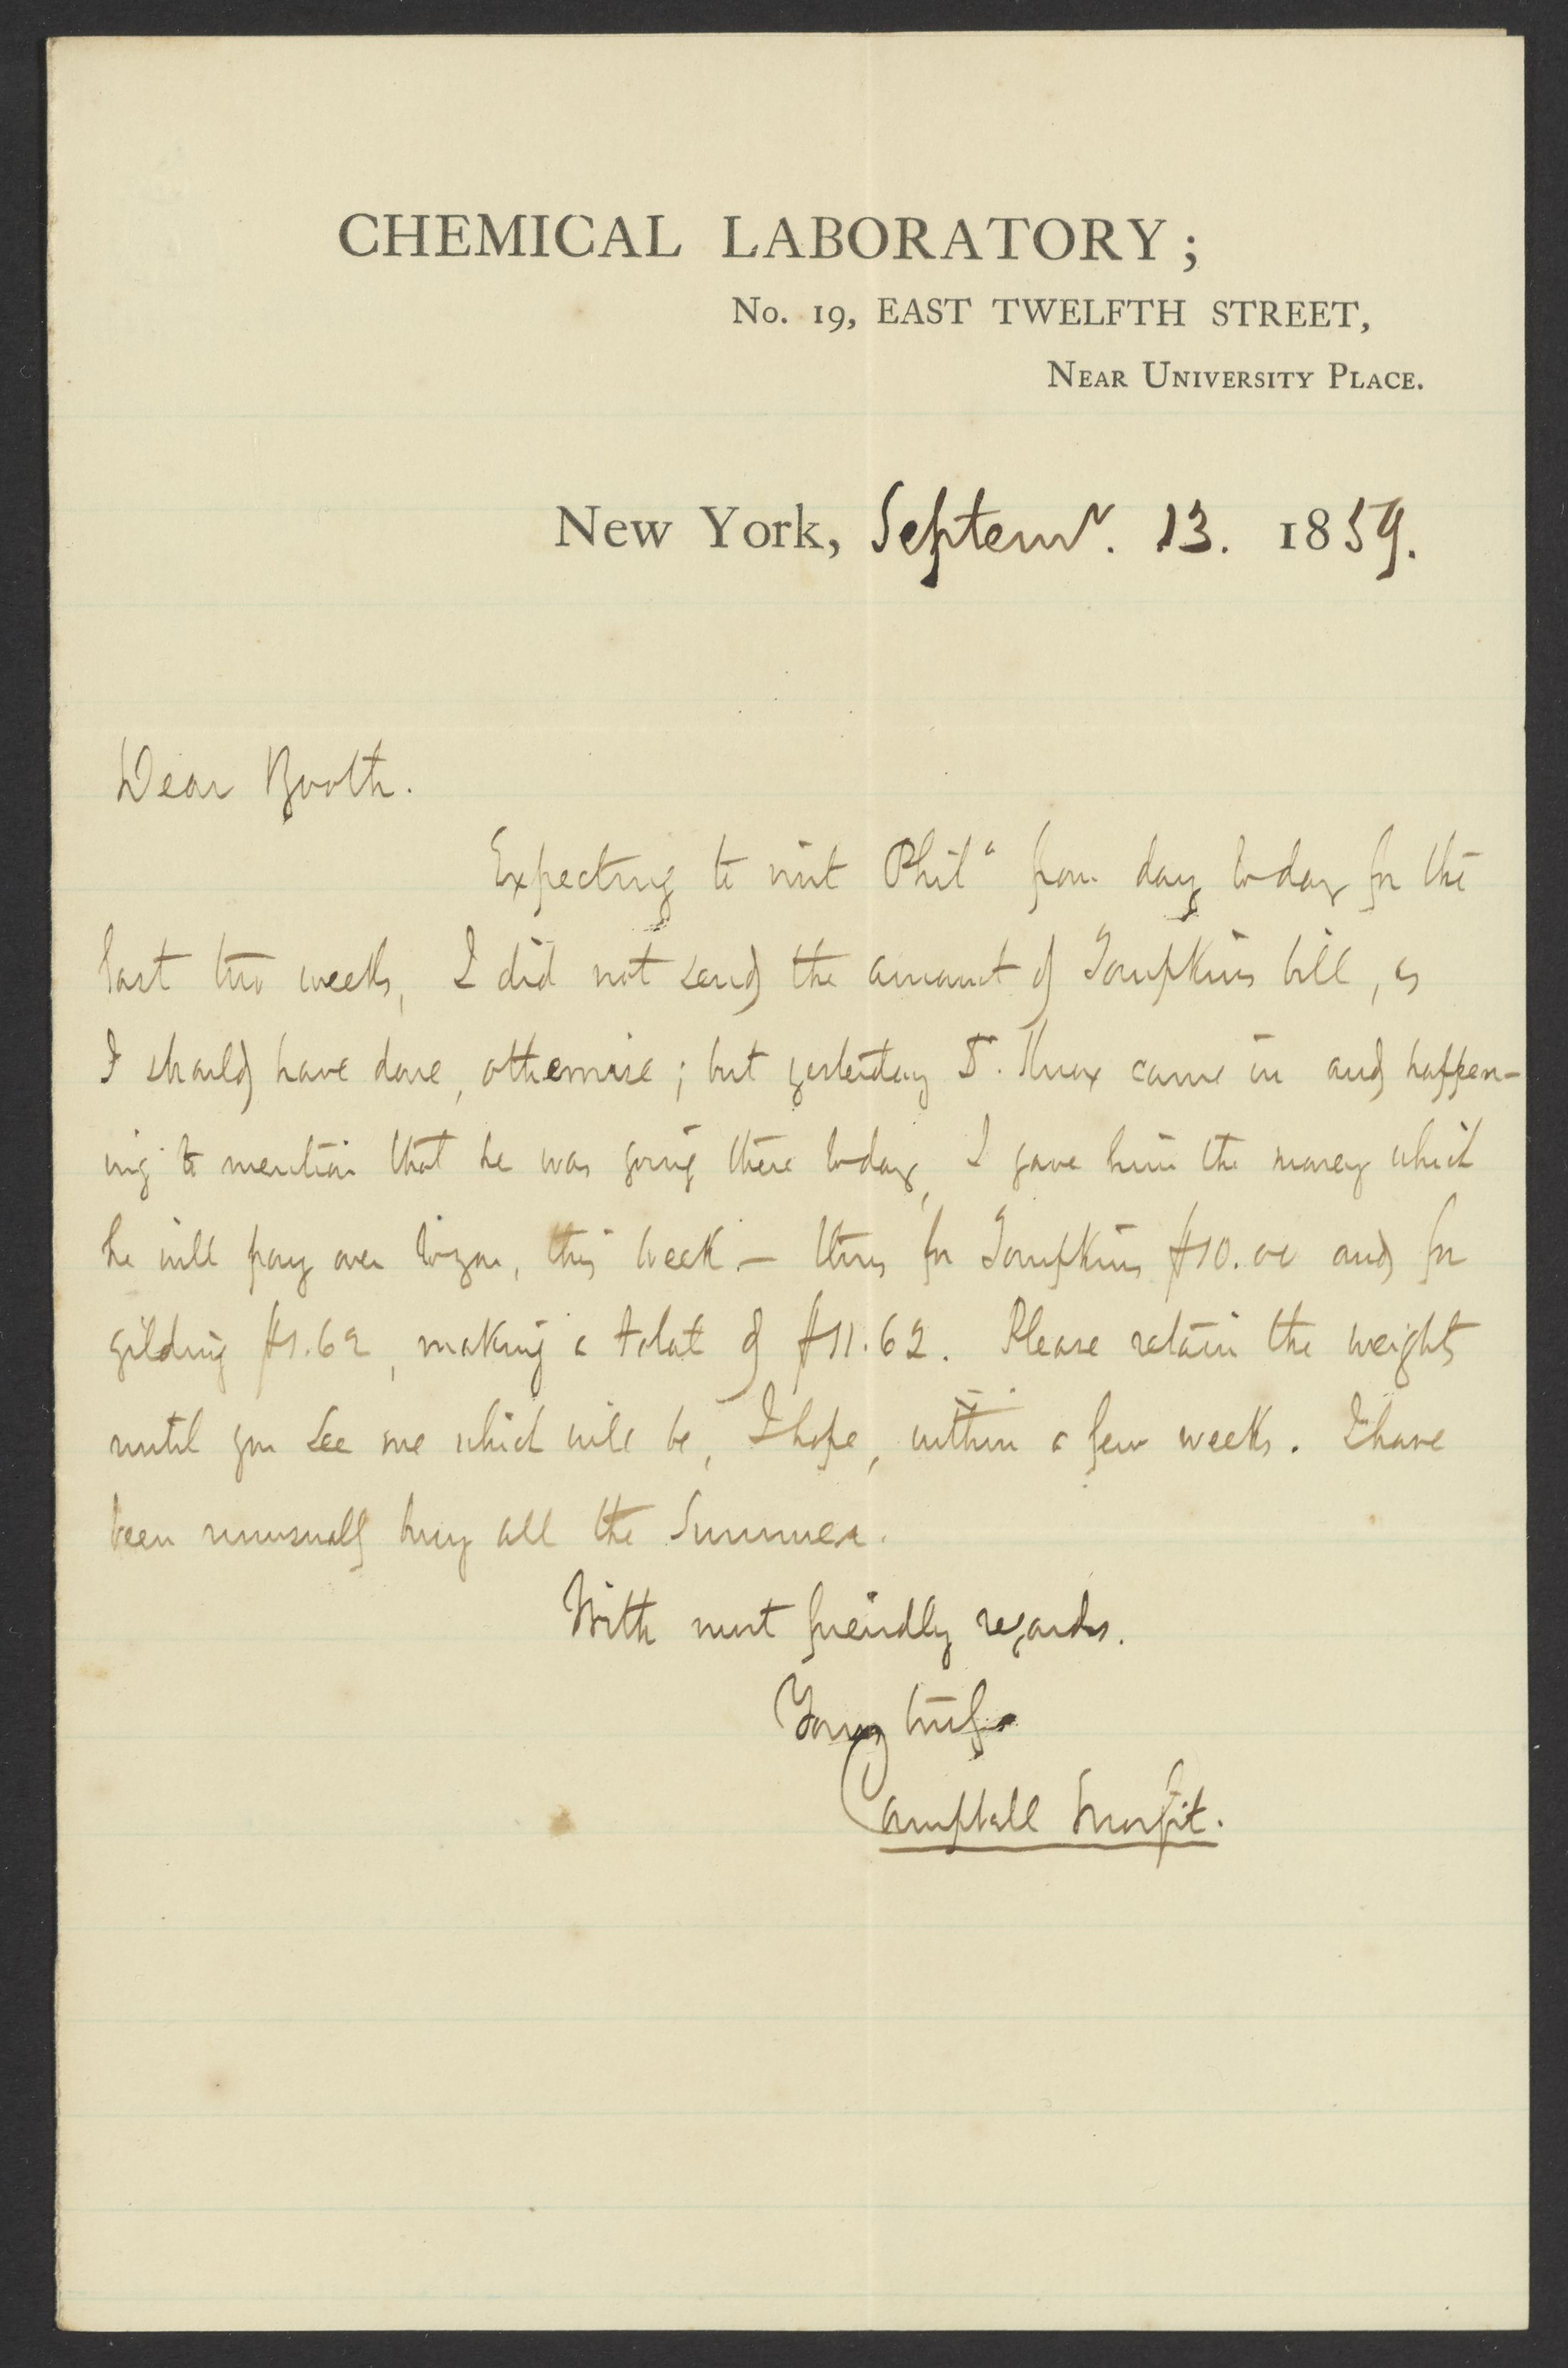 CHEMICAL LABORATORY;
No. 19, EAST TWELFTH STREET,
NEAR UNIVERSITY PLACE.
New York, Septemr. 13. 1859.
Dear Booth.
Expecting to visit Phila from day to day for the
last two weeks, I did not send the amount of Tompkins bill, as
I should have done, otherwise; but yesterday Knox came in and happen-
ing to mention that he was going there today, I gave him the money which
he will pay over to you, this week – thus for Tompkins $10.00 and for
gilding $1.62, making a total of $11.62. Please retain the weights
until you see me which will be, I hope, within a few weeks. I have
been unusually busy all the Summer.
With most friendly regards.
Yours truly
Campbell Morfit.